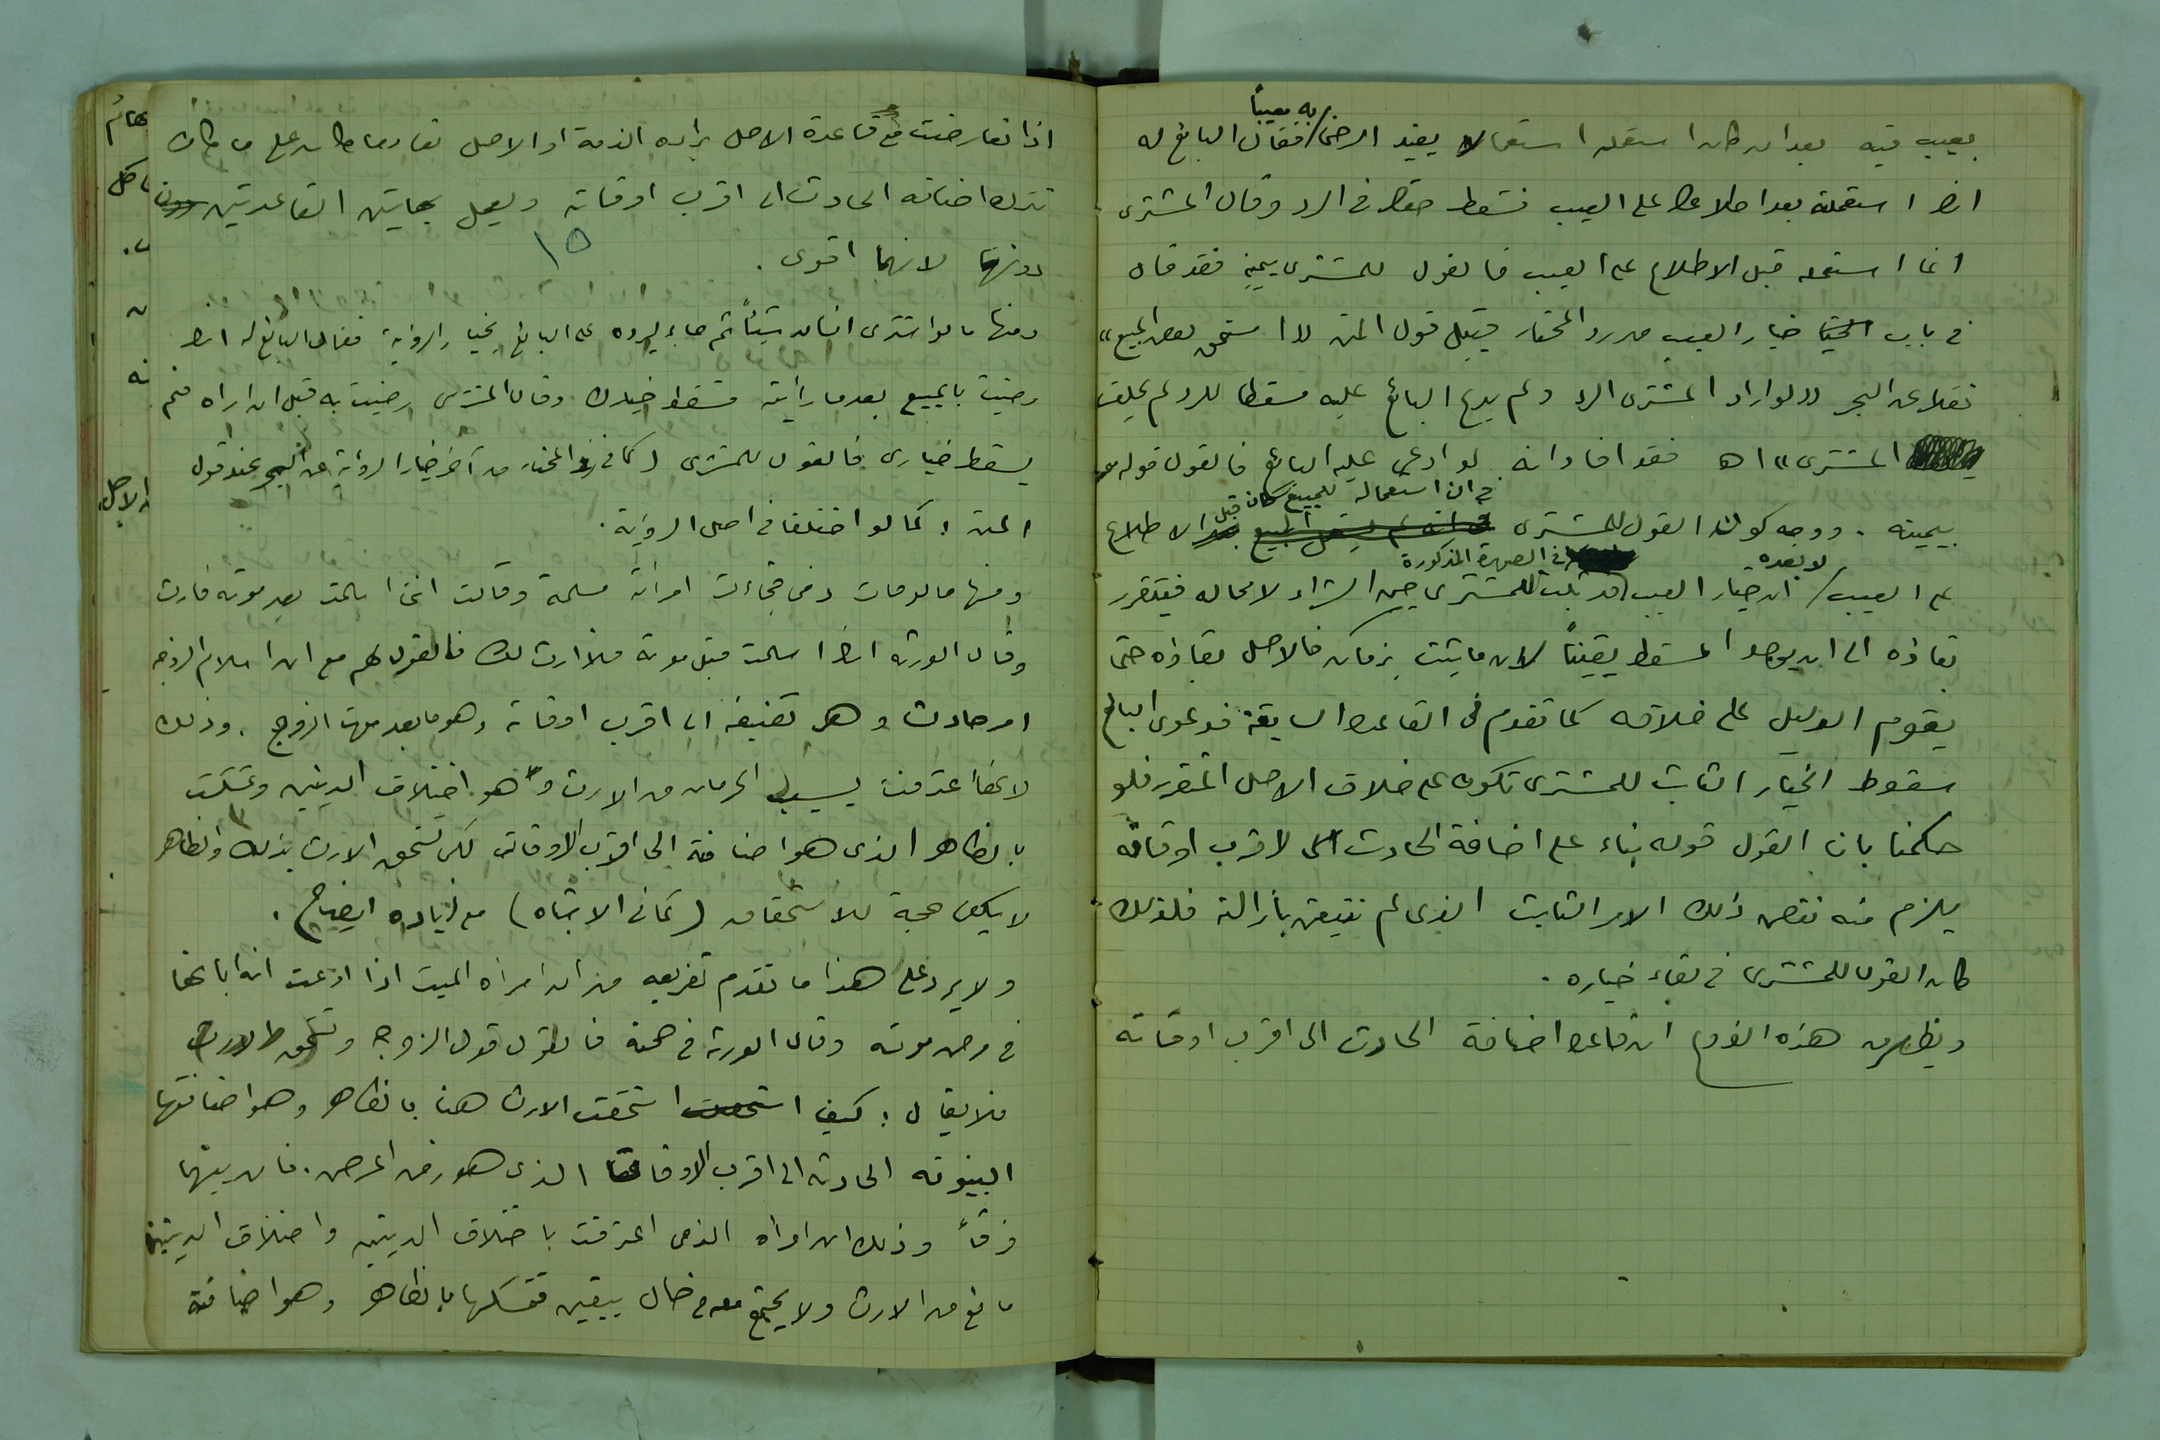 بعيب فيه بعد ان كان استعمله استعمالا يفيد الرضا به معيباً فقال البائع له
انك استعملته بعد اطلاعك على العيب فسقط حقك في الرد وقال المشتري
انما استعملته قبل الاطلاع على العيب فالقول للمشتري بيمينه فقد قال
في باب خيار العيب من رد المحتار قبيل قول المتن «استحق بعض المبيع»
نقلا عن البحر «ولو اراد المشتري الرد ولم يدع البائع عليه مسقطا للرد لم يحلف
المشتري» اهـ فقد افاد انه لو ادعى عليه البائع فالقول قوله
بيمينه . ووجه كون القول للمشتري في ان استعماله للمبيع كان قبل الاطلاع
على العيب لا بعده ان خيار العيب في الصورة المذكورة قد ثبت للمشتري حين الشراء لا محالة فيتقرر
بقاؤه الى ان يوجد المسقط يقيناً لان ما يثبت بزمان فالاصل بقاؤه حتى
يقوم الدليل على خلافه كما تقدم في القاعدة السابقة فدعوى البائع
سقوط الخيار الثابت للمشتري تكون على خلاف الاصل المتقرر فلو
حكمنا بان القول قوله بناء على اضافة الحادث الى اقرب اوقاته
يلزم منه نقض ذلك الامر الثابت الذي لم نتيقن بازالته فلذلك
كان القول للمشتري في بقاء خياره .
ويظهر من هذه الفروع ان قاعدة اضافة الحادث الى اقرب اوقاته
اذا تعارضت مع قاعدة الاصل براءة الذمة او الاصل بقاء ما كان على ما كان
تترك اضافة الحادث الى اقرب اوقاته ويعمل بهاتين القاعدتين
دونها لانهما اقوى .
١٥
ومنها ما لو اشترى انسان شيئاً ثم جاء ليرده على البائع بخيار الرؤية فقال البائع له انك
رضيت بالمبيع بعد ما رأيته فسقط خيارك وقال المشتري رضيت به قبل ان اراه فلم
يسقط خياري فالقول للمشتري (كما في رد المحتار من آخر خيار الرؤية عن البحر عند قول
المتن : كما لو اختلفا في اصل الرؤية .
ومنها ما لو مات ذمي فجاءت امرأته مسلمة وقالت انني اسلمت بعد موته فارث
وقال الورثة انك اسلمت قبل موته فلا ارث لك فالقول لهم مع ان اسلام الزوجة
امر حادث وهي تضيفه الى اقرب اوقاته وهو ما بعد موت الزوج . وذلك
لانها اعترفت بسبب الحرمان من الارث وهو اختلاف الدينين وتمسكت
بالظاهر الذي هو اضافة الى اقرب الاوقات لكي تستحق الارث بذلك والظاهر
لا يكفي حجة للاستحقاق (كما في الاشباه) مع زيادة ايضاح .
ولا يرد على هذا ما تقدم تفريعه من ان امرأة الميت اذا ادعت انه ابانها
في مرض موته وقال الورثة في صحته فالقول قول الزوجة وتستحق الارث
فلا يقال : كيف استحقت الارث هنا بالظاهر وهو اضافتها
البينونة الحادثة الى اقرب الاوقات الذي هو زمن المرض . فان بينهما
فرقاً وذلك ان امرأة الذمي اعترفت باختلاف الدينين واختلاف الدينين
مانع من الارث ولا يجتمع معه في حال بيقين فتمسكها بالظاهر وهو اضافة